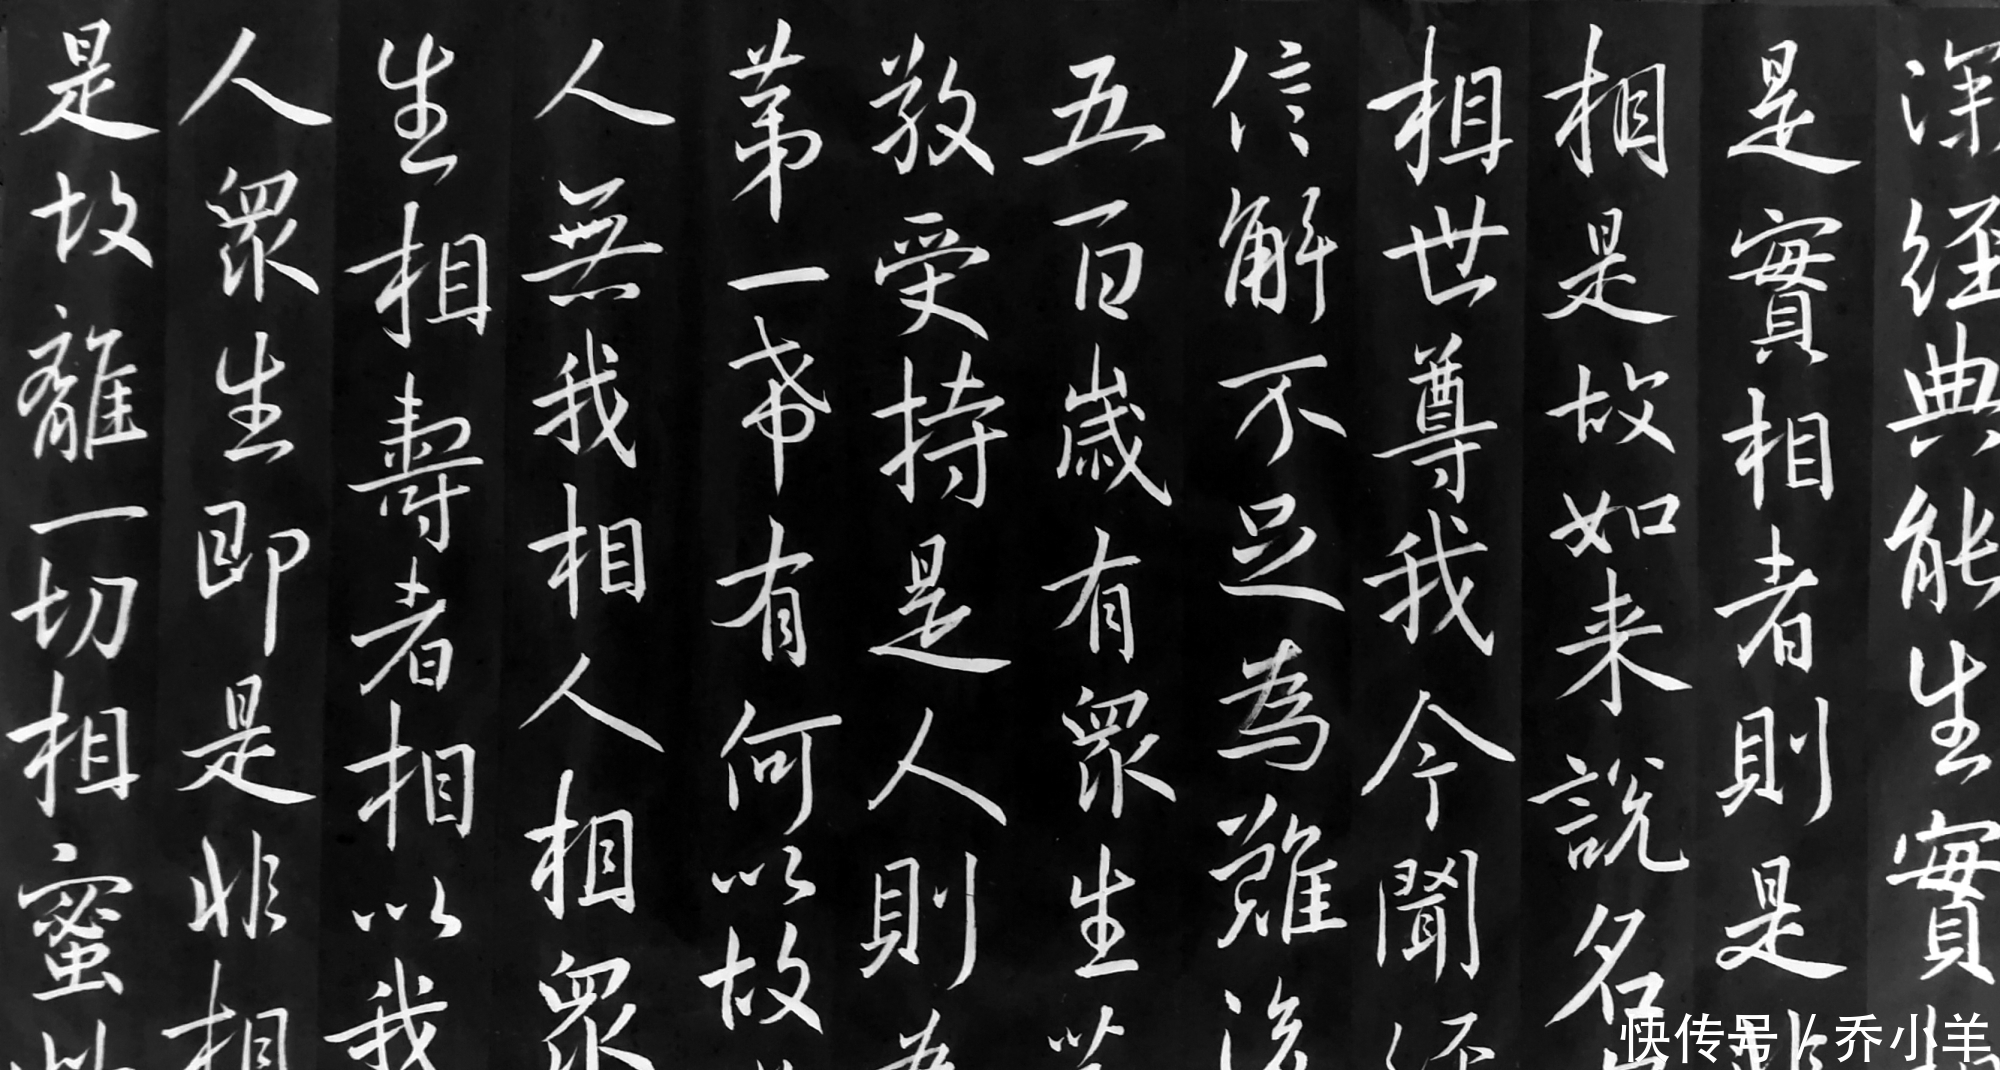 深經典能生實
是實相者則是
相是故如来說名
相世尊我今聞
信解不足為難
五百歲有眾生
教受持是人則
第一希有何以故
人無我相人相眾
生相壽者相以我
人眾生即是非相
是故離一切相蜜
快传号 / 乔小羊